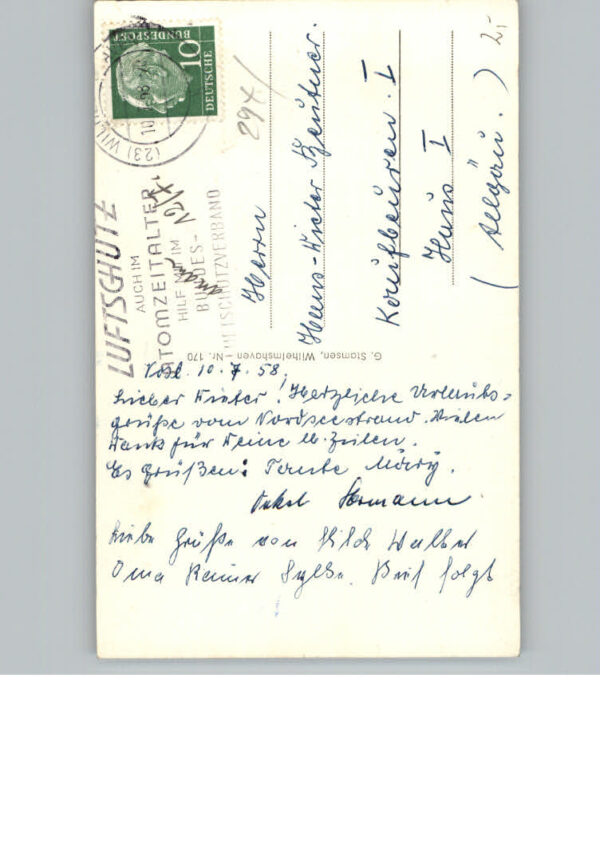 2,-
29x/
10
DEUTSCHE
BUNDESPOST
(23) WILH
10
LUFTSCHUTZ
AUCH IM
ATOMZEITALTER
HILF IM
BUNDES-
LUFTSCHUTZVERBAND
Herrn
Hans-Dieter
Kaufbeuren. I
Haus I
(Allgäu.)
G. Stomsen, Wilhelmshaven - Nr. 170
10.7.58.
Lieber Dieter! Herzliche Urlaubs=
grüße vom Nordseestrand. Vielen
Dank für Deine lb. Zeilen.
Es grüßen: Tante Märy.
Onkel Hermann.
Liebe Grüße von Hilde Walter
Oma Rainer Sylke. Brief folgt